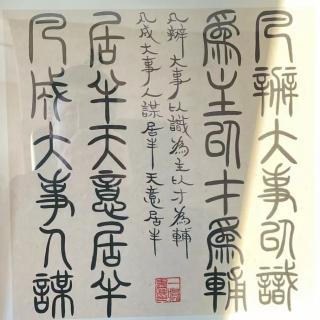 凡辦大事以識
為主以才為輔
凡辦大事以識為主以才為輔
凡成大事人謀居半天意居半
凡成大事人謀
居半天意居半